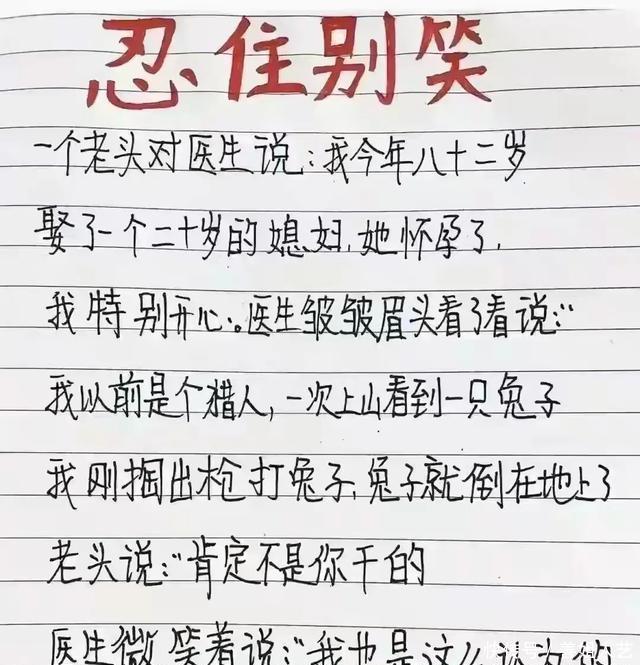 忍住别笑
一个老头对医生说:我今年八十二岁
娶了一个二十岁的媳妇,她怀孕了,
我特别开心。医生皱皱眉头看了看说:“
我以前是个猎人,一次上山看到一只兔子
我刚掏出枪打兔子,兔子就倒在地上了
老头说:“肯定不是你干的
医生微笑着说:“我也是这么